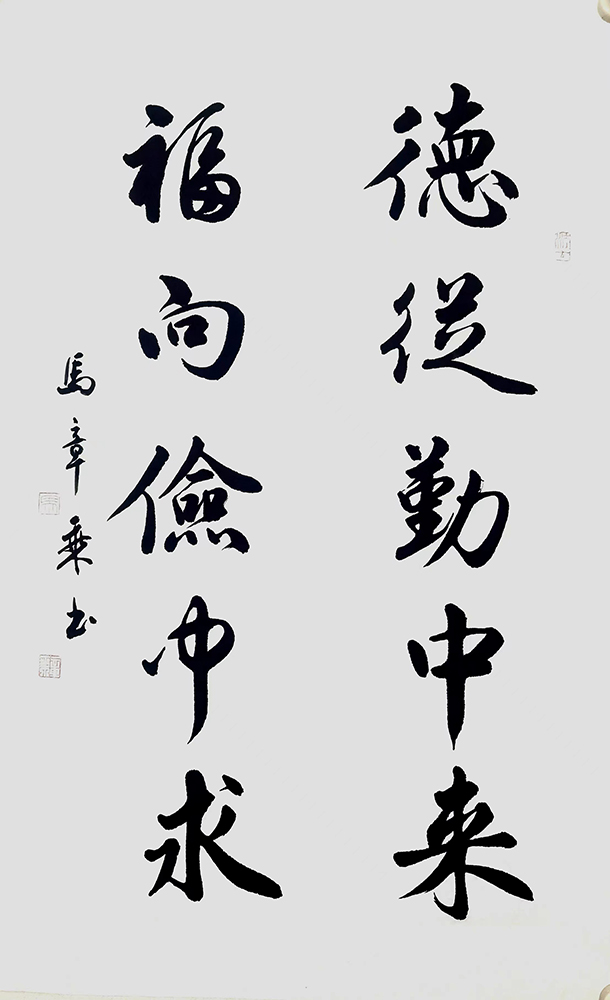 德從勤中来
福向儉中求
馬章乘书